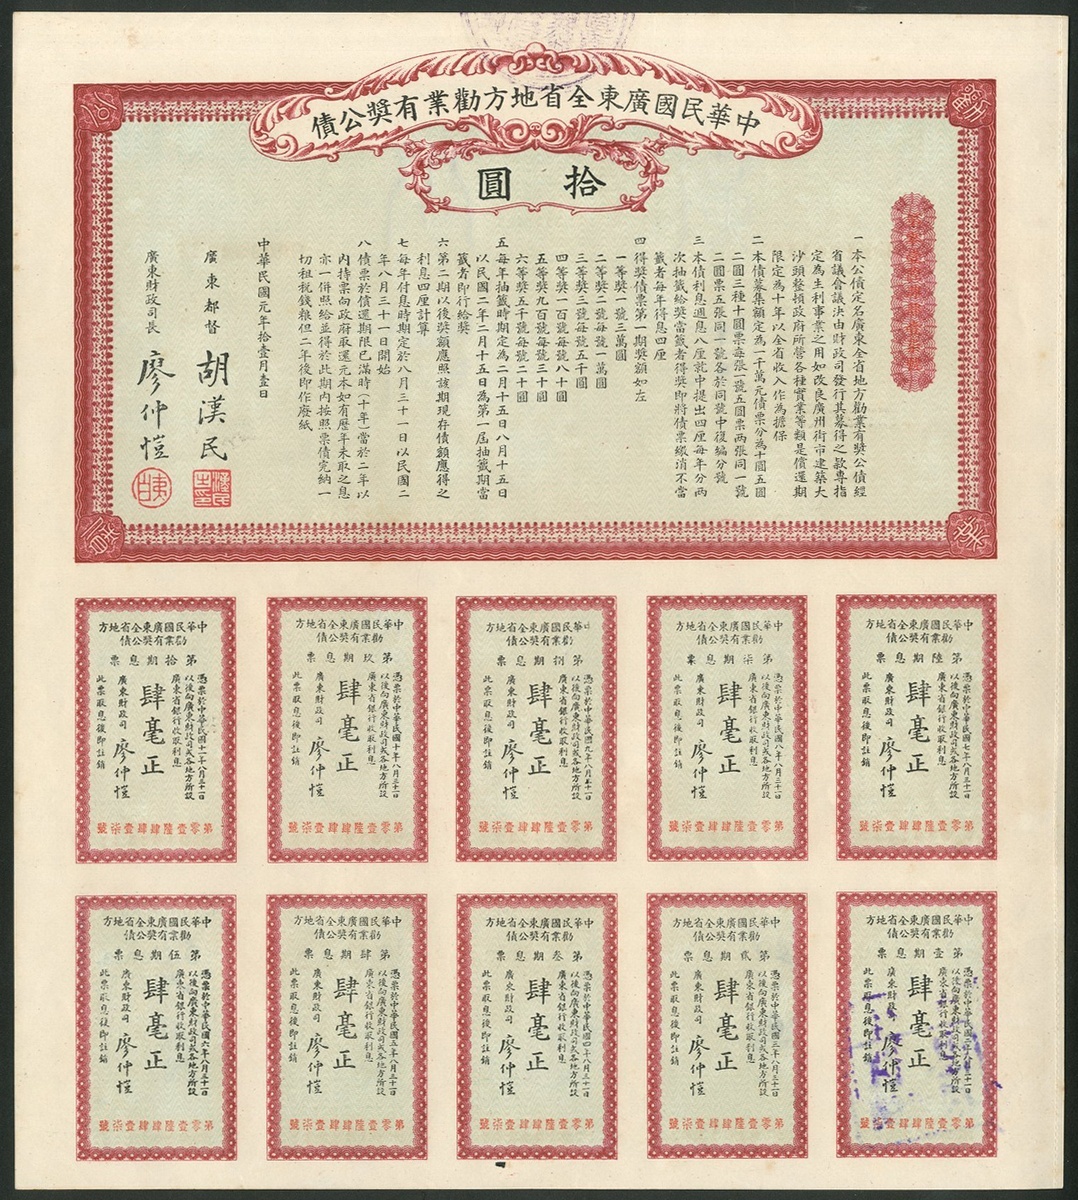 中華民國廣東全省地方勸業有獎公債
拾圓
一本公債定名廣東全省地方勸業有獎公債經
省議會議決由財政司發行其募得之款專指
定為生利事業之用如改良廣州街市建築大
沙頭整頓政府所營各種實業等類是償還期
限定為十年以全省收入作為擔保
二本債募集額定為一千萬元債票分為十圓五圓
二圓三種十圓票每張一號五圓票兩張同一號
二圓票五張同一號各於同號中復編分號
三本債利息週息八厘就中提出四厘每年分兩
次抽籤給獎當籤者得獎即將債票繳消不當
籤者每年得息四厘
四得獎債票第一期獎額如左
一等獎一號三萬圓
二等獎二號每號一萬圓
三等獎三號每號五千圓
四等獎一百號每號八十圓
五等獎九百號每號三十圓
六等獎五千號每號二十圓
五每年抽籤時期定為二月十五日八月十五日
以民國二年二月十五日為第一屆抽籤期當
籤者即行給獎
六第二期以後獎額應照該期現存債額應得之
利息四厘計算
七每年付息時期定於八月三十一日以民國二
年八月三十一日開始
八債票於償還期限已滿時(十年)當於二年以
內持票向政府取還元本如有歷年未取之息
亦一併照給並得於此期內按照票債完納一
切租稅錢糧但二年後即作廢紙
中華民國元年拾壹月壹日
廣東都督 胡漢民
廣東財政司長 廖仲愷
中華民國廣東全省地方
勸業有獎公債
第陸期息票
憑票於中華民國七年八月三十一日
以後向廣東財政司或各地方所設
廣東省銀行收取利息
肆毫正
廣東財政司 廖仲愷
此票取息後即註銷
第零壹陸肆肆壹柒號
中華民國廣東全省地方
勸業有獎公債
第柒期息票
憑票於中華民國八年八月三十一日
以後向廣東財政司或各地方所設
廣東省銀行收取利息
肆毫正
廣東財政司 廖仲愷
此票取息後即註銷
第零壹陸肆肆壹柒號
中華民國廣東全省地方
勸業有獎公債
第捌期息票
憑票於中華民國九年八月三十一日
以後向廣東財政司或各地方所設
廣東省銀行收取利息
肆毫正
廣東財政司 廖仲愷
此票取息後即註銷
第零壹陸肆肆壹柒號
中華民國廣東全省地方
勸業有獎公債
第玖期息票
憑票於中華民國十年八月三十一日
以後向廣東財政司或各地方所設
廣東省銀行收取利息
肆毫正
廣東財政司 廖仲愷
此票取息後即註銷
第零壹陸肆肆壹柒號
中華民國廣東全省地方
勸業有獎公債
第拾期息票
憑票於中華民國十一年八月三十一日
以後向廣東財政司或各地方所設
廣東省銀行收取利息
肆毫正
廣東財政司 廖仲愷
此票取息後即註銷
第零壹陸肆肆壹柒號
中華民國廣東全省地方
勸業有獎公債
第壹期息票
憑票於中華民國二年八月三十一日
以後向廣東財政司或各地方所設
廣東省銀行收取利息
肆毫正
廣東財政司 廖仲愷
此票取息後即註銷
第零壹陸肆肆壹柒號
中華民國廣東全省地方
勸業有獎公債
第貳期息票
憑票於中華民國三年八月三十一日
以後向廣東財政司或各地方所設
廣東省銀行收取利息
肆毫正
廣東財政司 廖仲愷
此票取息後即註銷
第零壹陸肆肆壹柒號
中華民國廣東全省地方
勸業有獎公債
第叁期息票
憑票於中華民國四年八月三十一日
以後向廣東財政司或各地方所設
廣東省銀行收取利息
肆毫正
廣東財政司 廖仲愷
此票取息後即註銷
第零壹陸肆肆壹柒號
中華民國廣東全省地方
勸業有獎公債
第肆期息票
憑票於中華民國五年八月三十一日
以後向廣東財政司或各地方所設
廣東省銀行收取利息
肆毫正
廣東財政司 廖仲愷
此票取息後即註銷
第零壹陸肆肆壹柒號
中華民國廣東全省地方
勸業有獎公債
第伍期息票
憑票於中華民國六年八月三十一日
以後向廣東財政司或各地方所設
廣東省銀行收取利息
肆毫正
廣東財政司 廖仲愷
此票取息後即註銷
第零壹陸肆肆壹柒號